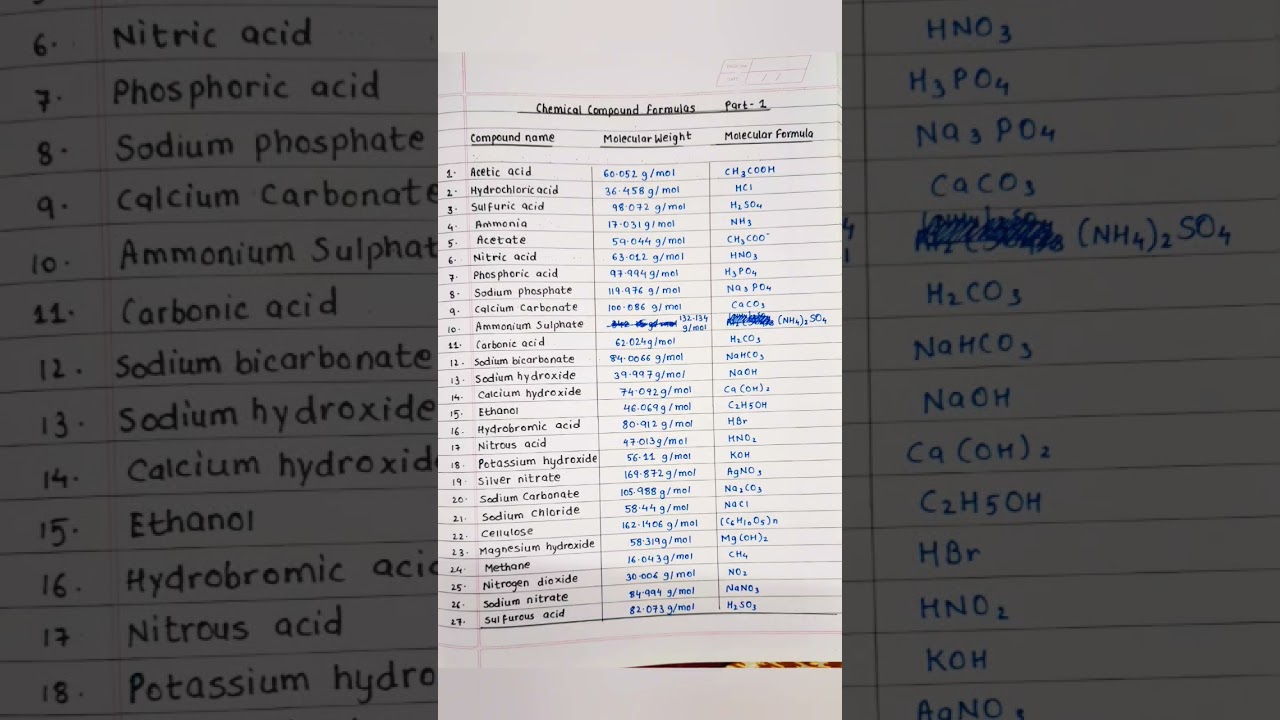 Chemical Compound Formulas Part-1
Compound name Molecular Weight Molecular Formula
1. Acetic acid 60.052 g/mol CH3COOH
2. Hydrochloric acid 36.458 g/mol HCl
3. Sulfuric acid 98.072 g/mol H2SO4
4. Ammonia 17.031 g/mol NH3
5. Acetate 59.044 g/mol CH3COO⁻
6. Nitric acid 63.012 g/mol HNO3
7. Phosphoric acid 97.994 g/mol H3PO4
8. Sodium phosphate 119.976 g/mol Na3PO4
9. Calcium Carbonate 100.086 g/mol CaCO3
10. Ammonium Sulphate 132.134 g/mol (NH4)2SO4
11. Carbonic acid 62.024g/mol H2CO3
12. Sodium bicarbonate 84.0066 g/mol NaHCO3
13. Sodium hydroxide 39.997g/mol NaOH
14. Calcium hydroxide 74.092g/mol Ca(OH)2
15. Ethanol 46.069g/mol C2H5OH
16. Hydrobromic acid 80.912 g/mol HBr
17 Nitrous acid 47.013g/mol HNO2
18. Potassium hydroxide 56.11 g/mol KOH
19. Silver nitrate 169.872g/mol AgNO3
20. Sodium Carbonate 105.988g/mol Na2CO3
21. Sodium chloride 58.44g/mol NaCl
22. Cellulose 162.1406 g/mol (C6H10O5)n
23. Magnesium hydroxide 58.319g/mol Mg(OH)2
24. Methane 16.043g/mol CH4
25. Nitrogen dioxide 30.006 g/mol NO2
26. Sodium nitrate 84.994 g/mol NaNO3
27. Sulfurous acid 82.073g/mol H2SO3
6. Nitric acid HNO3
7. Phosphoric acid H3PO4
8. Sodium phosphate Na3PO4
9. Calcium Carbonate CaCO3
10. Ammonium Sulphat (NH4)2SO4
11. Carbonic acid H2CO3
12. Sodium bicarbonate NaHCO3
13. Sodium hydroxide NaOH
14. Calcium hydroxid Ca(OH)2
15. Ethanol C2H5OH
16. Hydrobromic acid HBr
17 Nitrous acid HNO2
18. Potassium hydro KOH
AgNO3